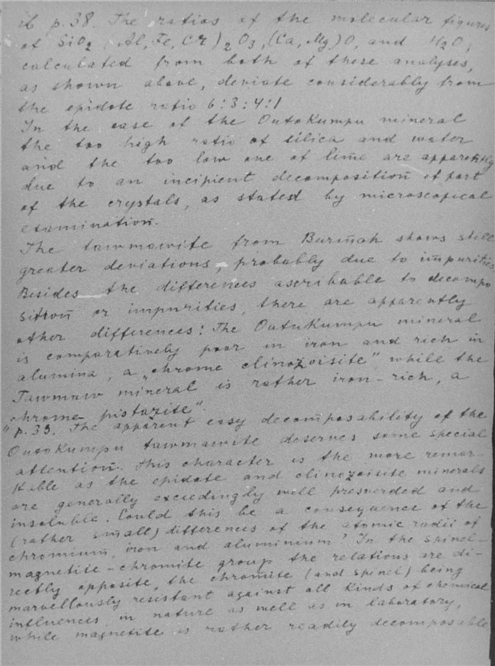 ib p.38. The ratios of the molecular figures
of SiO2, (Al, Fe, Cr)2O3, (Ca, Mg)O, and H2O,
calculated from both of these analyses,
as shown above, deviate considerably from
the epidote ratio 6:3:4:1
In the case of the Outokumpu mineral
the too high ratio of silica and water
and the too low one of lime are apparently
due to an incipient decomposition of part
of the crystals, as stated by microscopical
examination.
The tawmawite from Burmah shows still
greater deviations, probably due to impurities
Besides the differences ascribable to decompo
sition or impurities, there are apparently
other differences: The Outukumpu mineral
is comparatively poor in iron and rich in
alumina, a „chrome clinozoisite" while the
Tawmaw mineral is rather iron-rich, a
„chrome pistazite".
p.39. The apparent easy decomposability of the
Outokumpu tawmawite deserves some special
attention. This character is the more remar-
kable as the epidote and clinozoisite minerals
are generally exceedingly well preserved and
insoluble. Could this be a consequence of the
(rather small) differences of the atomic radii of
chromium, iron and aluminium? In the spinel-
magnetite-chromite group the relations are di-
rectly opposite, the chromite (and spinel) being
marvellously resistant against all kinds of chemical
influences in nature as well as in laboratory,
while magnetite is rather readily decomposable